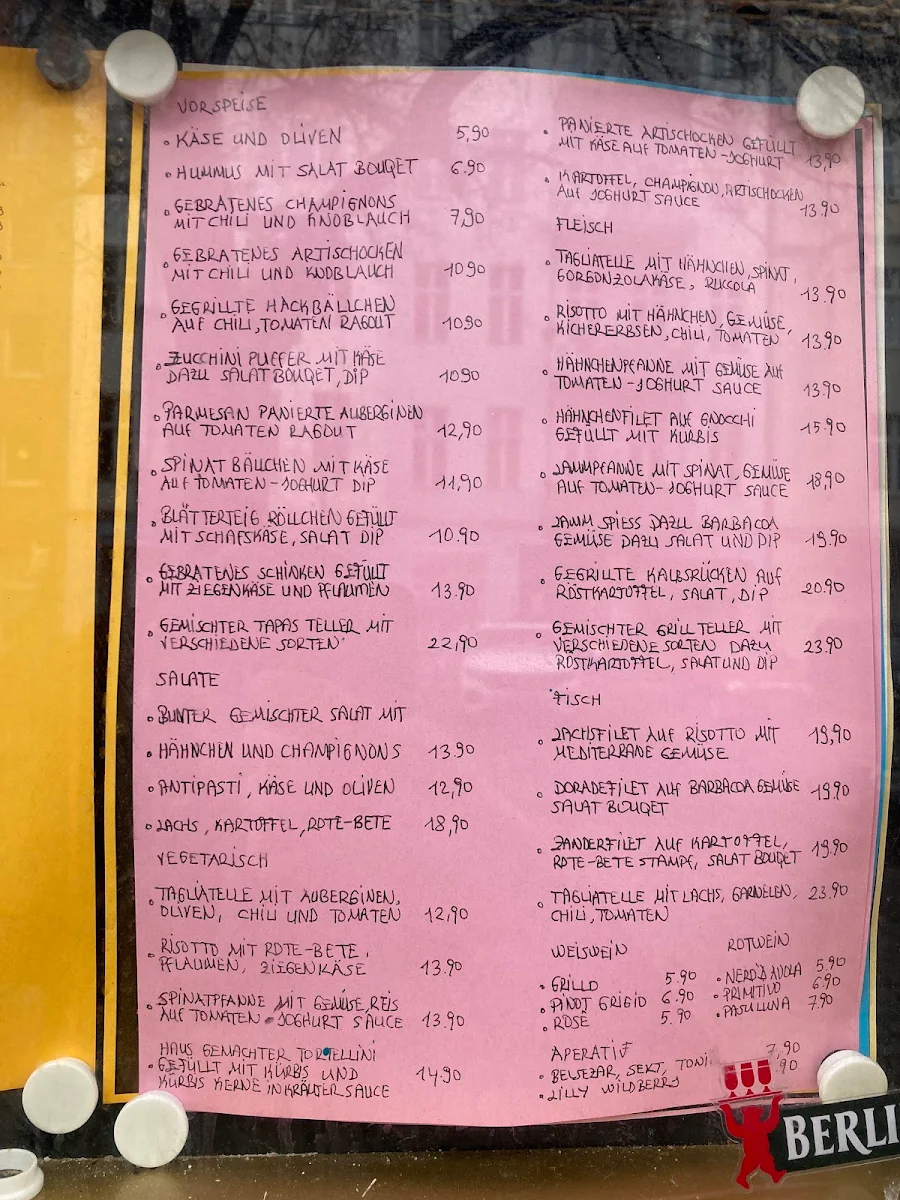 VORSPEISE
• KÄSE UND OLIVEN 5,90
• HUMMUS MIT SALAT BOUQET 6.90
• GEBRATENES CHAMPIGNONS
MIT CHILI UND KNOBLAUCH 7,90
• GEBRATENES ARTISCHOCKEN
MIT CHILI UND KNOBLAUCH 10.90
• GEGRILLTE HACKBÄLLCHEN
AUF CHILI, TOMATEN RAGOUT 10.90
• ZUCCHINI PUFFER MIT KÄSE
DAZU SALAT BOUQET, DIP 10.90
• PARMESAN PANIERTE AUBERGINEN
AUF TOMATEN RAGOUT 12,90
• SPINAT BÄLLCHEN MIT KÄSE
AUF TOMATEN-JOGHURT DIP 11,90
• BLÄTTERTEIG RÖLLCHEN GEFÜLLT
MIT SCHAFSKÄSE, SALAT DIP 10.90
• GEBRATENES SCHINKEN GEFÜLLT
MIT ZIEGENKÄSE UND PFLAUMEN 13.90
• GEMISCHTER TAPAS TELLER MIT
VERSCHIEDENE SORTEN 22,90
SALATE
• BUNTER GEMISCHTER SALAT MIT
• HÄHNCHEN UND CHAMPIGNONS 13.90
• ANTIPASTI, KÄSE UND OLIVEN 12,90
• LACHS, KARTOFFEL, ROTE-BETE 18,90
VEGETARISCH
• TAGLIATELLE MIT AUBERGINEN,
OLIVEN, CHILI UND TOMATEN 12,90
• RISOTTO MIT ROTE-BETE,
PFLAUMEN, ZIEGENKÄSE 13.90
• SPINATPFANNE MIT GEMÜSE, REIS
AUF TOMATEN-JOGHURT SAUCE 13.90
HAUS GEMACHTER TORTELLINI
• GEFÜLLT MIT KÜRBIS UND
KÜRBIS KERNE IN KRÄUTER SAUCE 14.90
• PANIERTE ARTISCHOCKEN GEFÜLLT
MIT KÄSE AUF TOMATEN-JOGHURT 13,90
• KARTOFFEL, CHAMPIGNON, ARTISCHOCKEN
AUF JOGHURT SAUCE 13.90
FLEISCH
• TAGLIATELLE MIT HÄHNCHEN, SPINAT,
GORGONZOLAKÄSE, RUCCOLA 13.90
• RISOTTO MIT HÄHNCHEN, GEMÜSE,
KICHERERBSEN, CHILI, TOMATEN 13.90
• HÄHNCHENPFANNE MIT GEMÜSE AUF
TOMATEN-JOGHURT SAUCE 13.90
• HÄHNCHENFILET AUF GNOCCHI
GEFÜLLT MIT KÜRBIS 15.90
• LAMMPFANNE MIT SPINAT, GEMÜSE
AUF TOMATEN-JOGHURT SAUCE 18,90
• LAMM SPIESS DAZU BARBACOA
GEMÜSE DAZU SALAT UND DIP 19.90
• GEGRILLTE KALBSRÜCKEN AUF
RÖSTKARTOFFEL, SALAT, DIP 20.90
• GEMISCHTER GRILL TELLER MIT
VERSCHIEDENE SORTEN DAZU
RÖSTKARTOFFEL, SALAT UND DIP 23.90
FISCH
• LACHSFILET AUF RISOTTO MIT
MEDITERRANE GEMÜSE 19,90
• DORADEFILET AUF BARBACOA GEMÜSE
SALAT BOUQET 19.90
• ZANDERFILET AUF KARTOFFEL,
ROTE-BETE STAMPF, SALAT BOUQET 19.90
• TAGLIATELLE MIT LACHS, GARNELEN,
CHILI, TOMATEN 23.90
WEISWEIN
• GRILLO 5.90
• PINOT GRIGIO 6.90
• ROSE 5.90
ROTWEIN
• NERO'D AVOLA 5.90
• PRIMITIVO 6.90
• PASULUNA 7.90
APERATIF 7,90
• BELSEZAR, SEKT, TONI .90
• LILLY WILDBERRY
BERLI